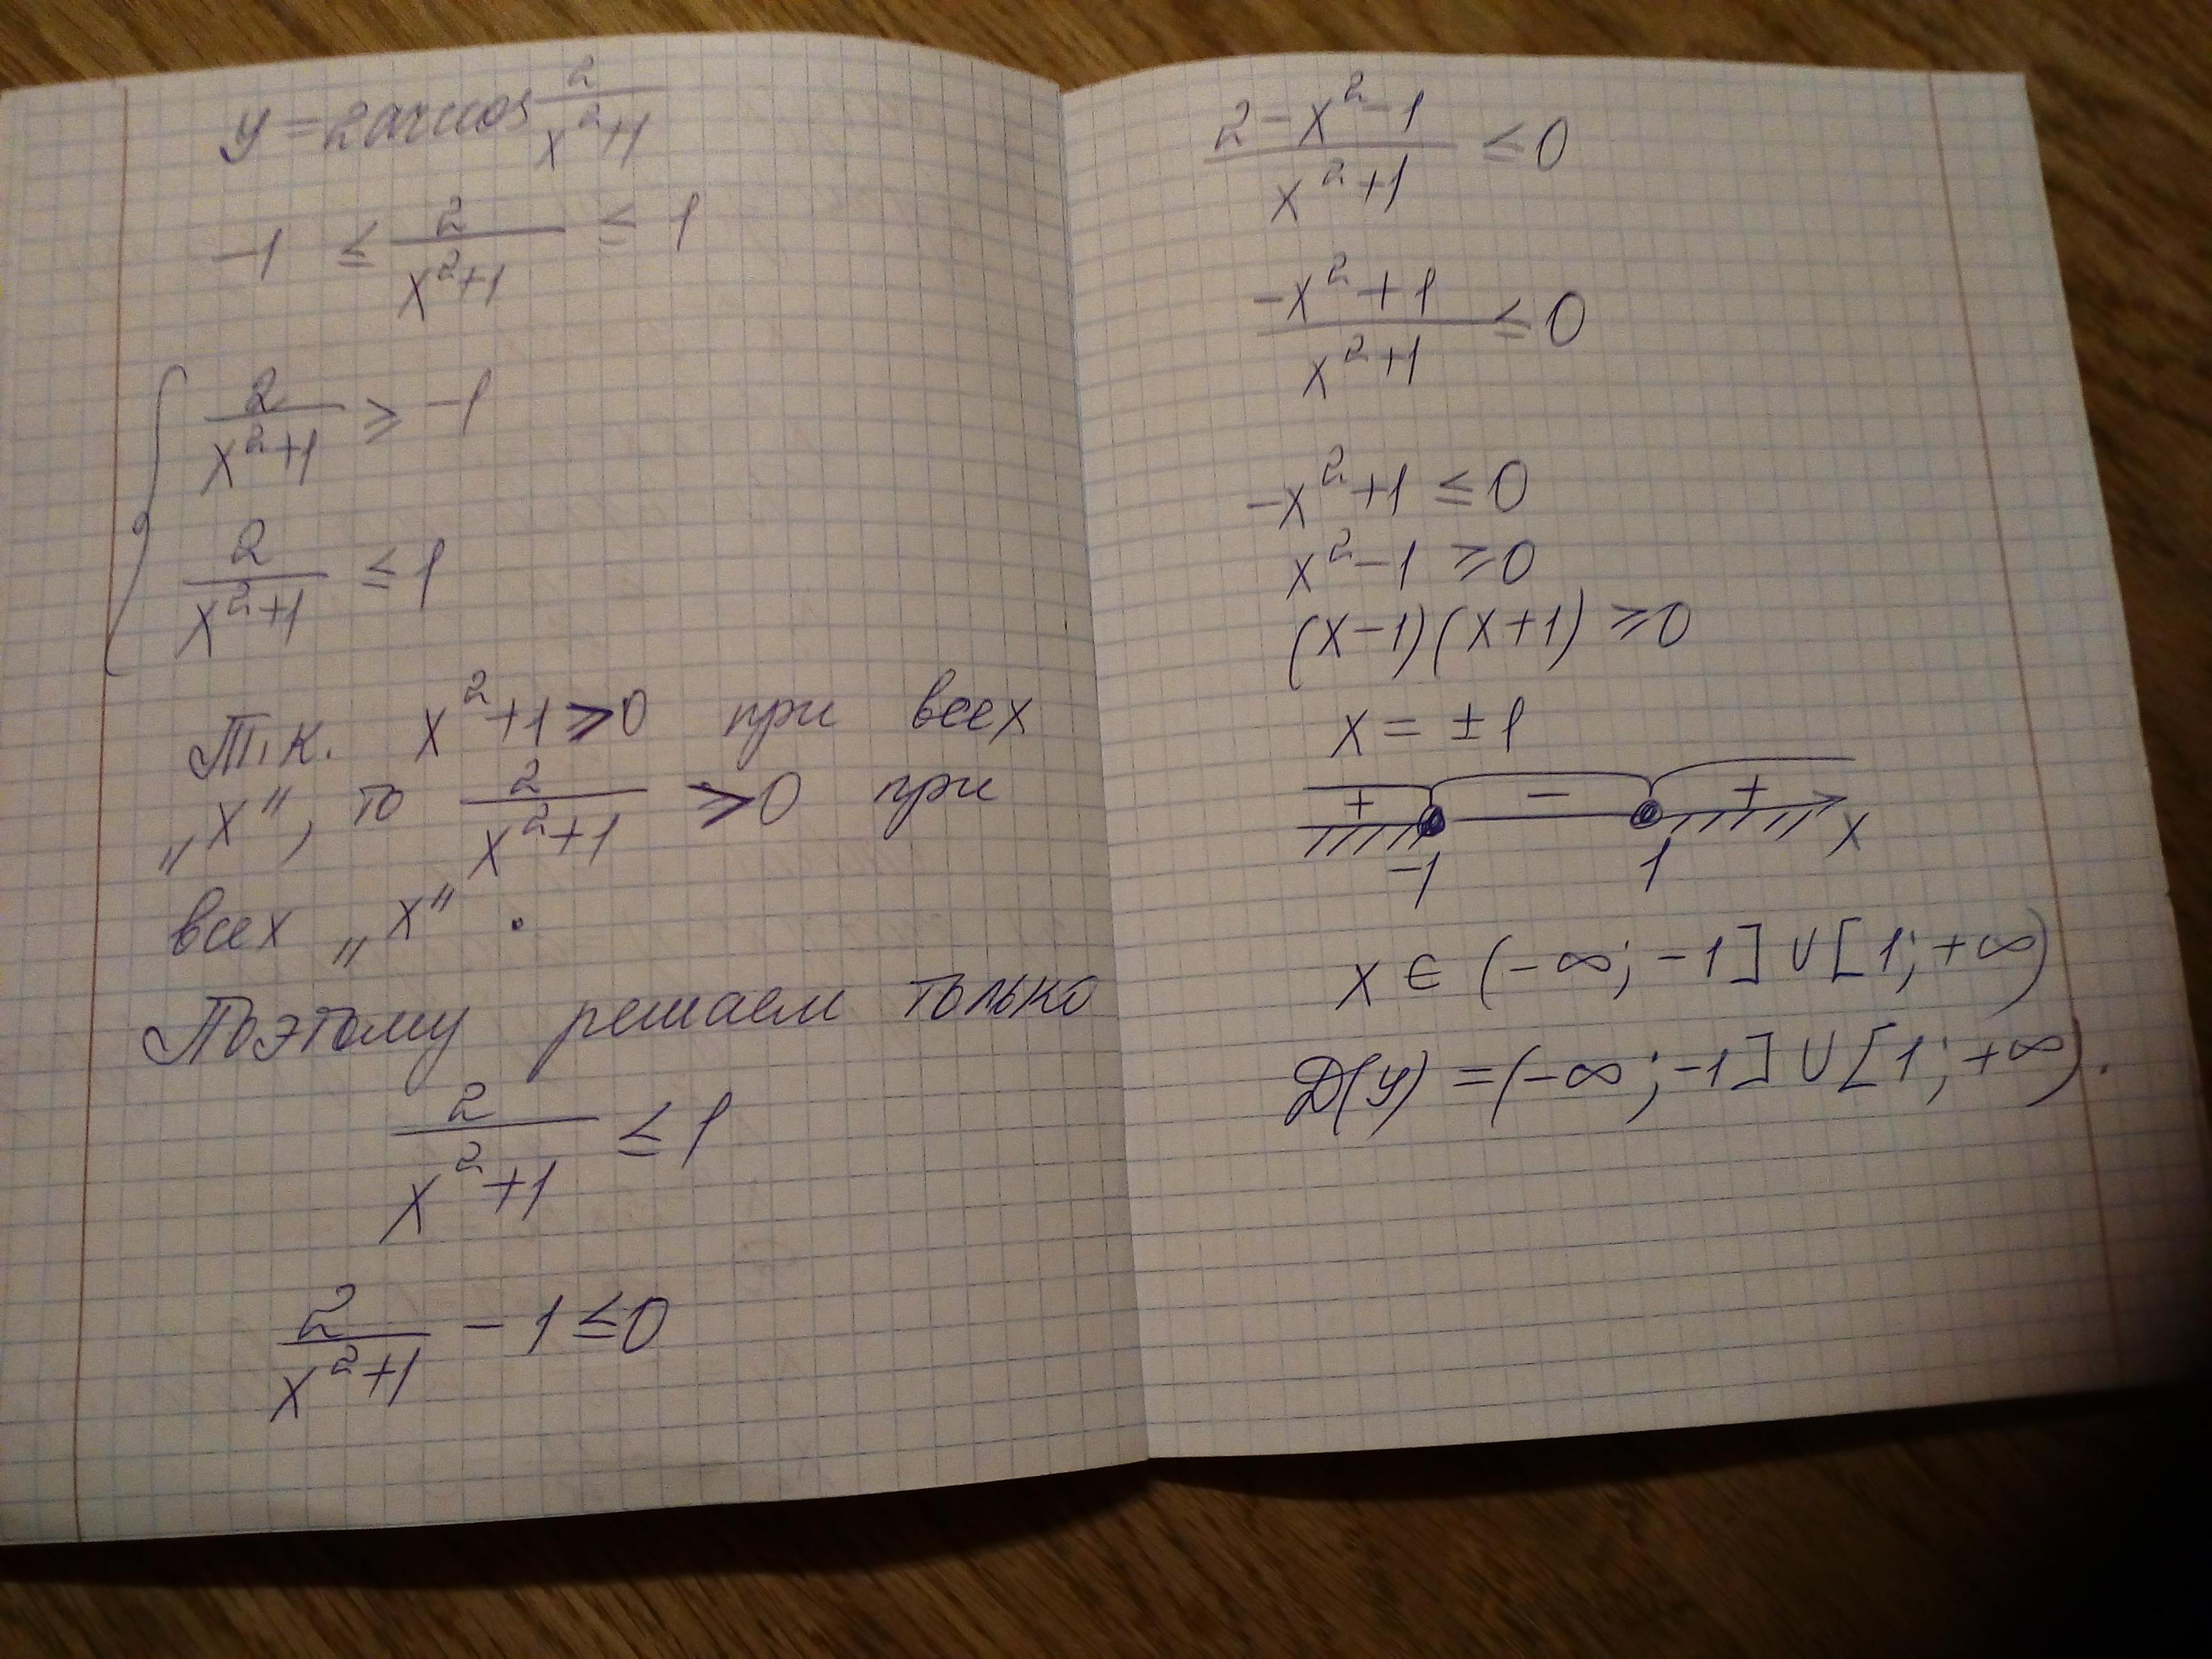 y = 2 arccos 2/(x²+1)
-1 ≤ 2/(x²+1) ≤ 1
{ 2/(x²+1) ≥ -1
2/(x²+1) ≤ 1
Т.к. x²+1 ≥ 0 при всех
„x", то 2/(x²+1) ≥ 0 при
всех „x".
Поэтому решаем только
2/(x²+1) ≤ 1
2/(x²+1) - 1 ≤ 0
(2-x²-1)/(x²+1) ≤ 0
(-x²+1)/(x²+1) ≤ 0
-x²+1 ≤ 0
x²-1 ≥ 0
(x-1)(x+1) ≥ 0
x = ±1
+ - +
-1 1 x
x ∈ (-∞; -1] ∪ [1; +∞)
D(y) = (-∞; -1] ∪ [1; +∞).